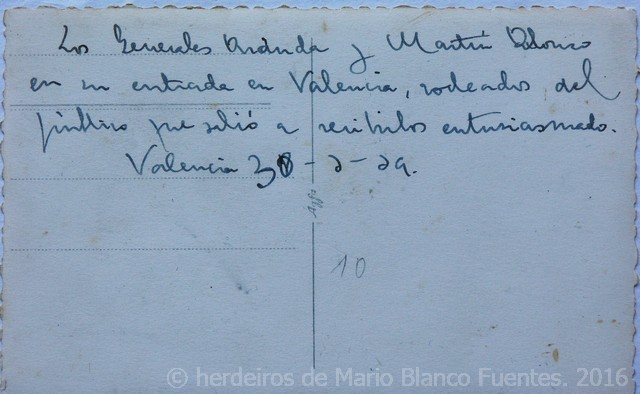 Los Generales Aranda y Martín Alonso
en su entrada en Valencia, rodeados del
público que salió a recibirlos entusiasmado.
Valencia 30 - 3 - 39.
10
© herdeiros de Mario Blanco Fuentes. 2016